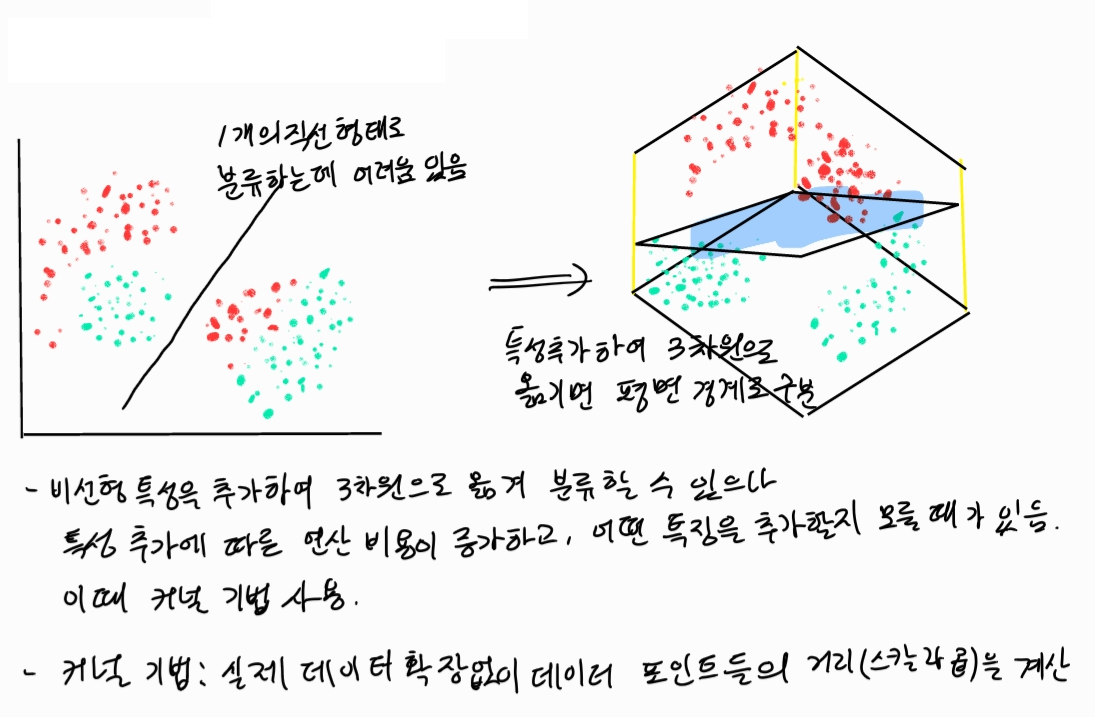 1개의 직선 형태로
분류하는데 어려움 있음
특성추가하여 3차원으로
옮기면 평면 경계로 구분
- 비선형 특성을 추가하여 3차원으로 옮겨 분류할 수 있으나
특성 추가에 따른 연산 비용이 증가하고, 어떤 특징을 추가할지 모를 때가 있음.
이때 커널 기법 사용.
- 커널 기법: 실제 데이터 확장없이 데이터 포인트들의 거리(스칼라곱)을 계산